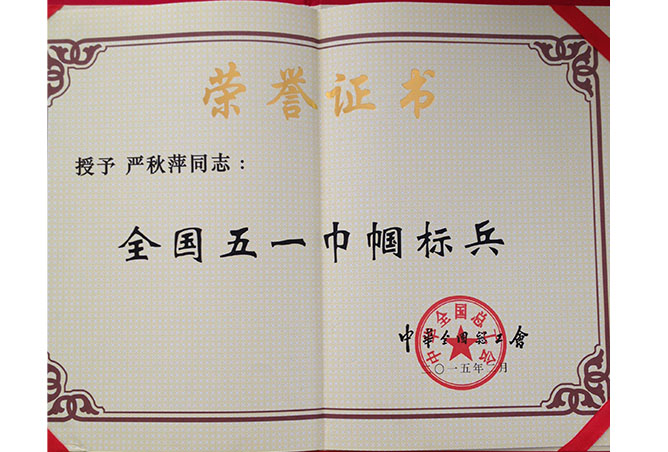 荣誉证书
授予 严秋萍同志：
全国五一巾帼标兵
中華全国總工會
中华全国总工会
二〇一五年二月